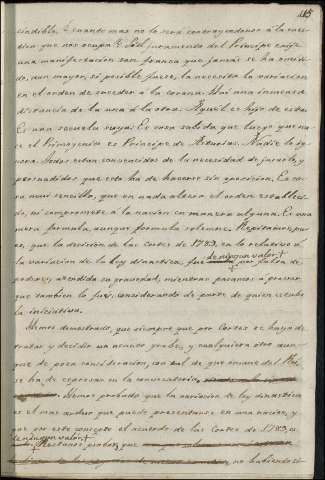 115
cindible, ¿cuanto mas no lo será contrayendonos à la cues-
tion que nos ocupa? Si el juramento del Principe exige
una manifestacion tan franca que jamas se ha omiti-
do, aun mayor, si posible fuese, la necesita la variacion
en el orden de suceder á la corona. Hai una inmensa
distancia de la una á la otra. Aquel es hijo de esta.
Es una secuela suya. Es cosa sabida que luego que na-
ce el Primogenito es Principe de Asturias. Nadie lo ig-
nora. Todos estan convencidos de la necesidad de jurarle, y
persuadidos que esto ha de hacerse sin oposicion. Es co-
sa mui sencilla, que en nada altera el orden estableci-
do, ni compromete á la nacion en manera alguna. Es una
mera formula, aunque formula solemne. Repitamos, pu-
es, que la decision de las Cortes de 1789, en lo relativo à
la variacion de la ley dinastica, fue de ningun valor + por falta de
poderes, atendida su gravedad, mientras pasamos á probar
que tambien lo fue, considerando de parte de quien estubo
la iniciativa.
Hemos demostrado, que siempre que por Cortes se haya de
tratar y decidir un asunto grabe, y cualquiera otro aun-
que de poca consideracion, con tal de que emane del Rey,
se ha de espresar en la convocatoria,
Hemos probado que la variacion de ley dinastica
es el mas arduo que puede presentarse en una nacion, y
que por este concepto el acuerdo de las Cortes de 1789, es
de ningun valor +
Restanos probar, que
no habiendo si-